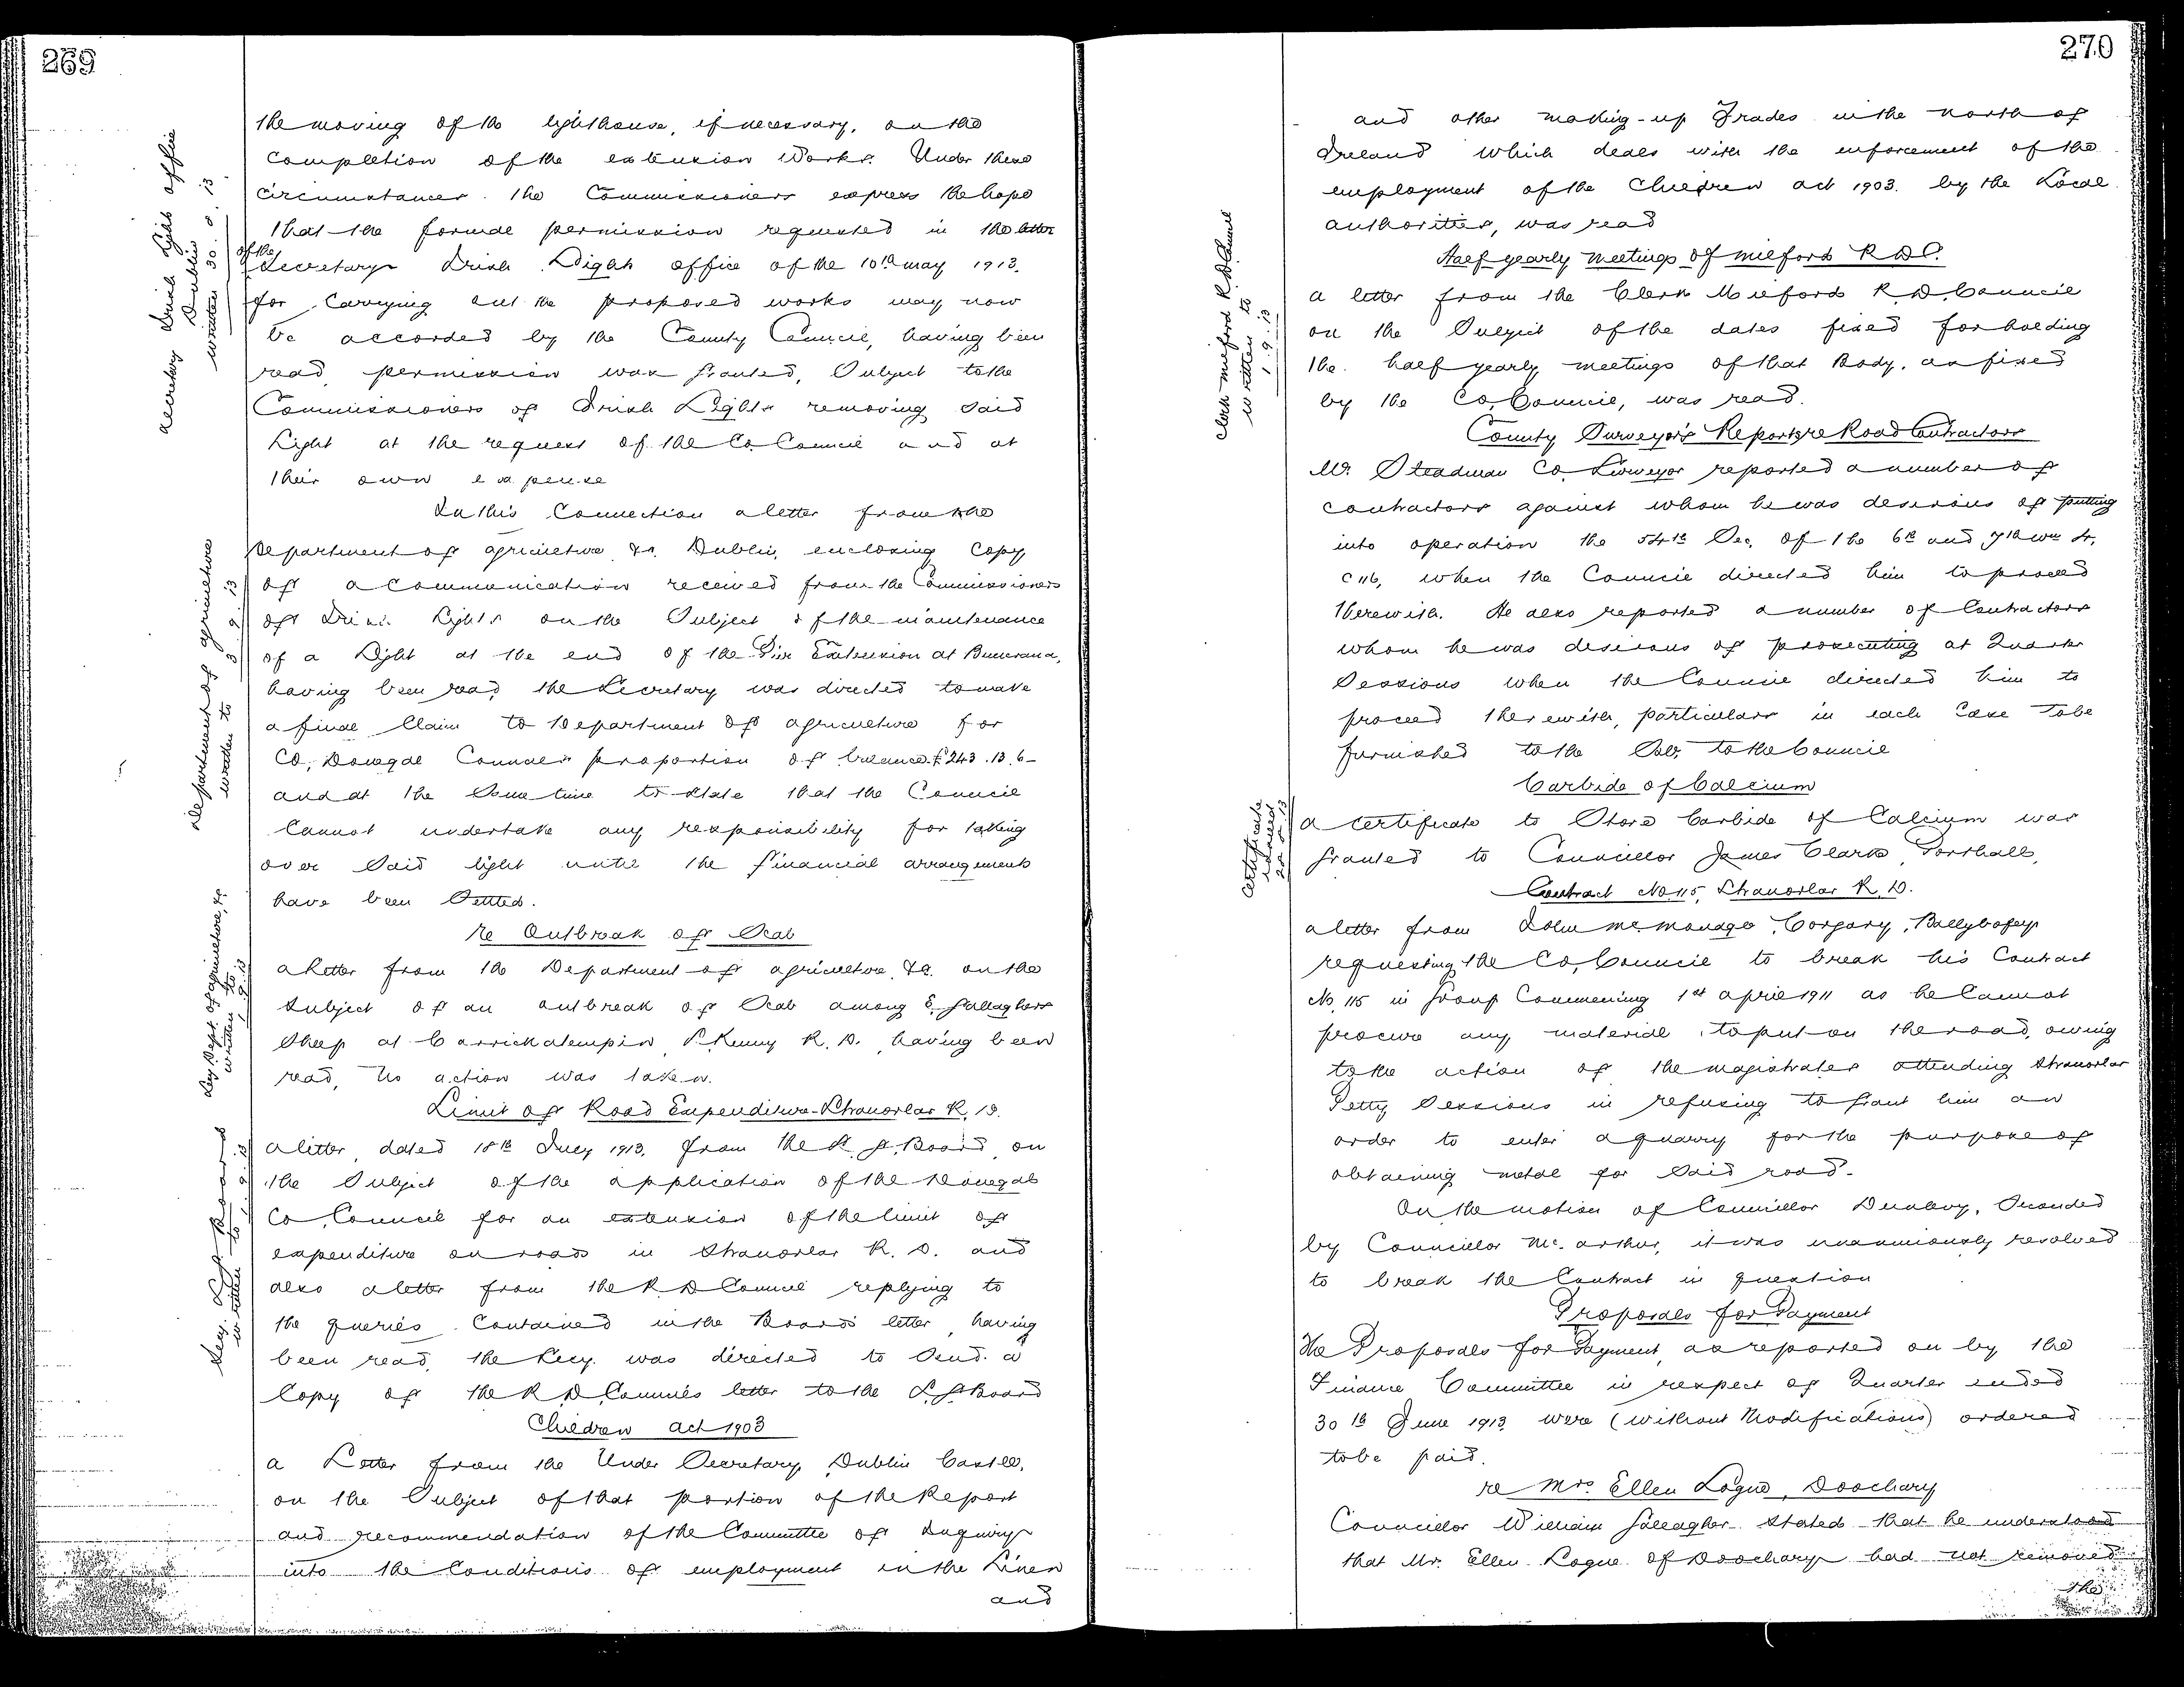 269
the moving of the lighthouse, if necessary, on the
completion of the extension Works. Under these
circumstances the Commissioners express the hope
that the formal permission requested in the letter
of the Secretary Irish Lights office of the 10th may 1913.
for carrying out the proposed works may now
be accorded by the County Council, having been
read, permission was granted, Subject to the
Commissioners of Irish Lights removing said
Light at the request of the Co. Council and at
their own expense
Secretary Irish Lights office
Dublin
written 30. 8. 13
In this Connection a letter from the
Department of agriculture &c. Dublin, enclosing Copy
of a Communication received from the Commissioners
of Irish Lights on the Subject of the maintenance
of a Light at the end of the Pier Extension at Buncrana,
having been read, the Secretary was directed to make
a final Claim to Department of agriculture for
Co, Donegal Council's proportion of balance £243.13.6-
and at the Same time to state that the Council
Cannot undertake any responsibility for taking
over Said light until the financial arrangements
have been Settled.
Department of agriculture
written to 3 9 13
re Outbreak of Scab
a Letter from the Department of agriculture &c. on the
subject of an outbreak of Scab among E. Gallaghers
Sheep at Carrickatempin, R. D., having been
read, no action was taken.
Secy. Dept. of agriculture, &c.
written to 1. 9. 13
Limit of Road Expenditure-Stranorlar R. D.
a letter dated 18th July 1913, from the L. G. Board on
the Subject of the application of the Donegal
Co. Council for an extension of the limit of
expenditure on roads in Stranorlar R. D. and
also a letter from the R D Council replying to
the queries Contained in the Boards letter having
been read, the Secy. was directed to Send a
Copy of the R. D. Councils letter to the L. G. Board
Secy. L. G. Board
written to
Children act 1903
a Letter from the Under Secretary, Dublin Castle,
on the Subject of that portion of the Report
and recommendation of the Committee of Inquiry
into the Conditions of employment in the Linen
and
270
and other making-up Trades in the north of
Ireland which deals with the enforcement of the
employment of the Children act 1903. by the Local
authorities, was read
Half yearly meetings of Milford R D C.
a letter from the Clerk Milford R. D. Council
on the Subject of the dates fixed for holding
the half yearly meetings of that Body, as fixed
by the Co, Council, was read.
Clerk milford R D Council
written to
1. 9. 13
County Surveyor's Reports re Road Contractors
Mr. Steadman Co. Surveyor reported a number of
contractors against whom he was desirous of putting
into operation the 54th Sec. of the 6th and 7th Wm 4,
C 116, when the Council directed him to proceed
therewith. He also reported a number of Contractors
whom he was desirous of prosecuting at Quarter
Sessions when the Council directed him to
proceed therewith, particulars in each Case to be
furnished to the Solr, to the Council
Carbide of Calcium
a certificate to Store Carbide of Calcium was
granted to Councillor James Clarke, Porthall,
Certificate
Contract No. 115, Stranorlar R. D.
a letter from John McMonagle, Corgary, Ballybofey
requesting the Co, Council to break his Contract
No. 115 in Group Commencing 1st april 1911 as he Cannot
procure any material to put on the road, owing
to the action of the magistrates attending Stranorlar
Petty Sessions in refusing to grant him an
order to enter a quarry for the purpose of
obtaining metal for Said road-
On the motion of Councillor Dunlevy, Seconded
by Councillor Mc. arthur, it was unanimously resolved
to break the Contract in question
Proposals for Payment
The Proposals for Payment, as reported on by the
Finance Committee in respect of Quarter ended
30th June 1913 were (without Modifications) ordered
to be paid.
re Mrs Ellen Logue, Doochary
Councillor William Gallagher stated that he understood
that Mr. Ellen Logue of Doochary had not removed
the